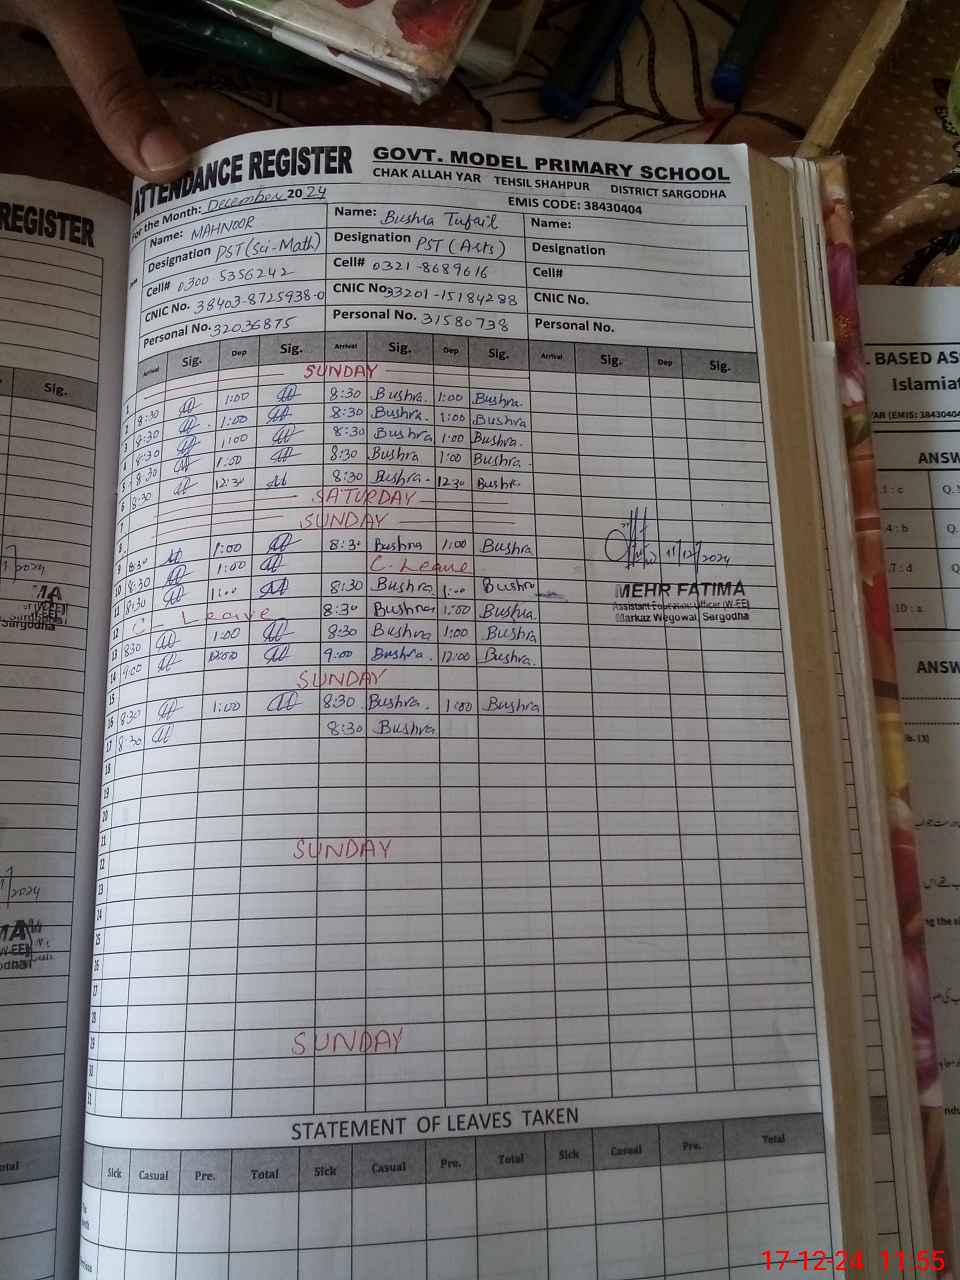 ATTENDANCE REGISTER
GOVT. MODEL PRIMARY SCHOOL
CHAK ALLAH YAR TEHSIL SHAHPUR DISTRICT SARGODHA
For the Month: December 2024 EMIS CODE: 38430404
Name: MAHNOOR Name: Bushra Tufail Name:
Designation PST (Sci-Math) Designation PST (Arts) Designation
Cell# 0300 5356242 Cell# 0321-8689616 Cell#
CNIC No. 38403-8725938-0 CNIC No. 33201-15184288 CNIC No.
Personal No. 32036875 Personal No. 31580738 Personal No.
Arrival Sig. Dep Sig. Arrival Sig. Dep Sig. Arrival Sig. Dep Sig.
1 SUNDAY
2 8:30 1:00 8:30 Bushra. 1:00 Bushra.
3 8:30 1:00 8:30 Bushra. 1:00 Bushra.
4 8:30 1:00 8:30 Bushra 1:00 Bushra.
5 8:30 1:00 8:30 Bushra 1:00 Bushra.
6 8:30 12:30 8:30 Bushra. 12:30 Bushra.
7 SATURDAY
8 SUNDAY
9 8:30 1:00 8:30 Bushra 1:00 Bushra
10 8:30 1:00 C. Leave
11 8:30 1:00 8:30 Bushra 1:00 Bushra
12 C - Leave 8:30 Bushra 1:00 Bushra
13 8:30 1:00 8:30 Bushra 1:00 Bushra
14 9:00 12:00 9:00 Bushra. 12:00 Bushra.
15 SUNDAY
16 8:30 1:00 8:30 Bushra. 1:00 Bushra
17 8:30 8:30 Bushra
18
19
20
21
22 SUNDAY
23
24
25
26
27
28
29 SUNDAY
30
31
11/12/2024
MEHR FATIMA
Assistant Education Officer (W-EE)
Markaz Wegowal, Sargodha
STATEMENT OF LEAVES TAKEN
Sick Casual Pre. Total Sick Casual Pre. Total Sick Casual Pre. Total
REGISTER
Sig.
2024
MA
Sargodha
2024
MA
(W-EE)
BASED AS
Islamiat
YAR (EMIS: 38430404
ANSW
1 : c Q.
4 : b Q.
7 : d Q.
10 : a
ANSW
17-12-24 11:55